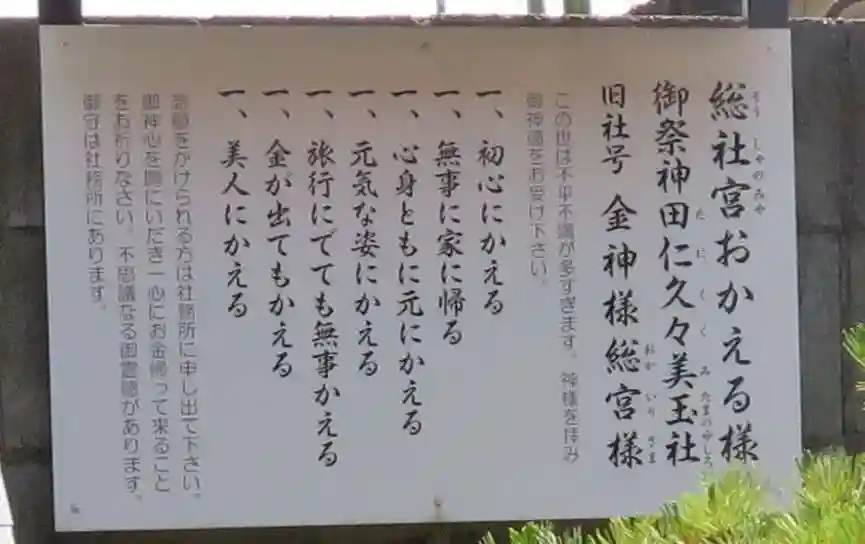 総社宮おかえる様
そうしゃのみや
御祭神田仁久々美玉社
たにくくみたまのやしろ
旧社号 金神様総宮様
おかいりさま
この世は不平不満が多すぎます。神様を拝み
御神徳をお受け下さい。
一、初心にかえる
一、無事に家に帰る
一、心身ともに元にかえる
一、元気な姿にかえる
一、旅行にでても無事かえる
一、金が出てもかえる
一、美人にかえる
念願をかけられる方は社務所に申し出て下さい。
御神心を胸にいだき一心にお金帰って来ること
をお祈りなさい。不思議なる御霊徳があります。
御守は社務所にあります。